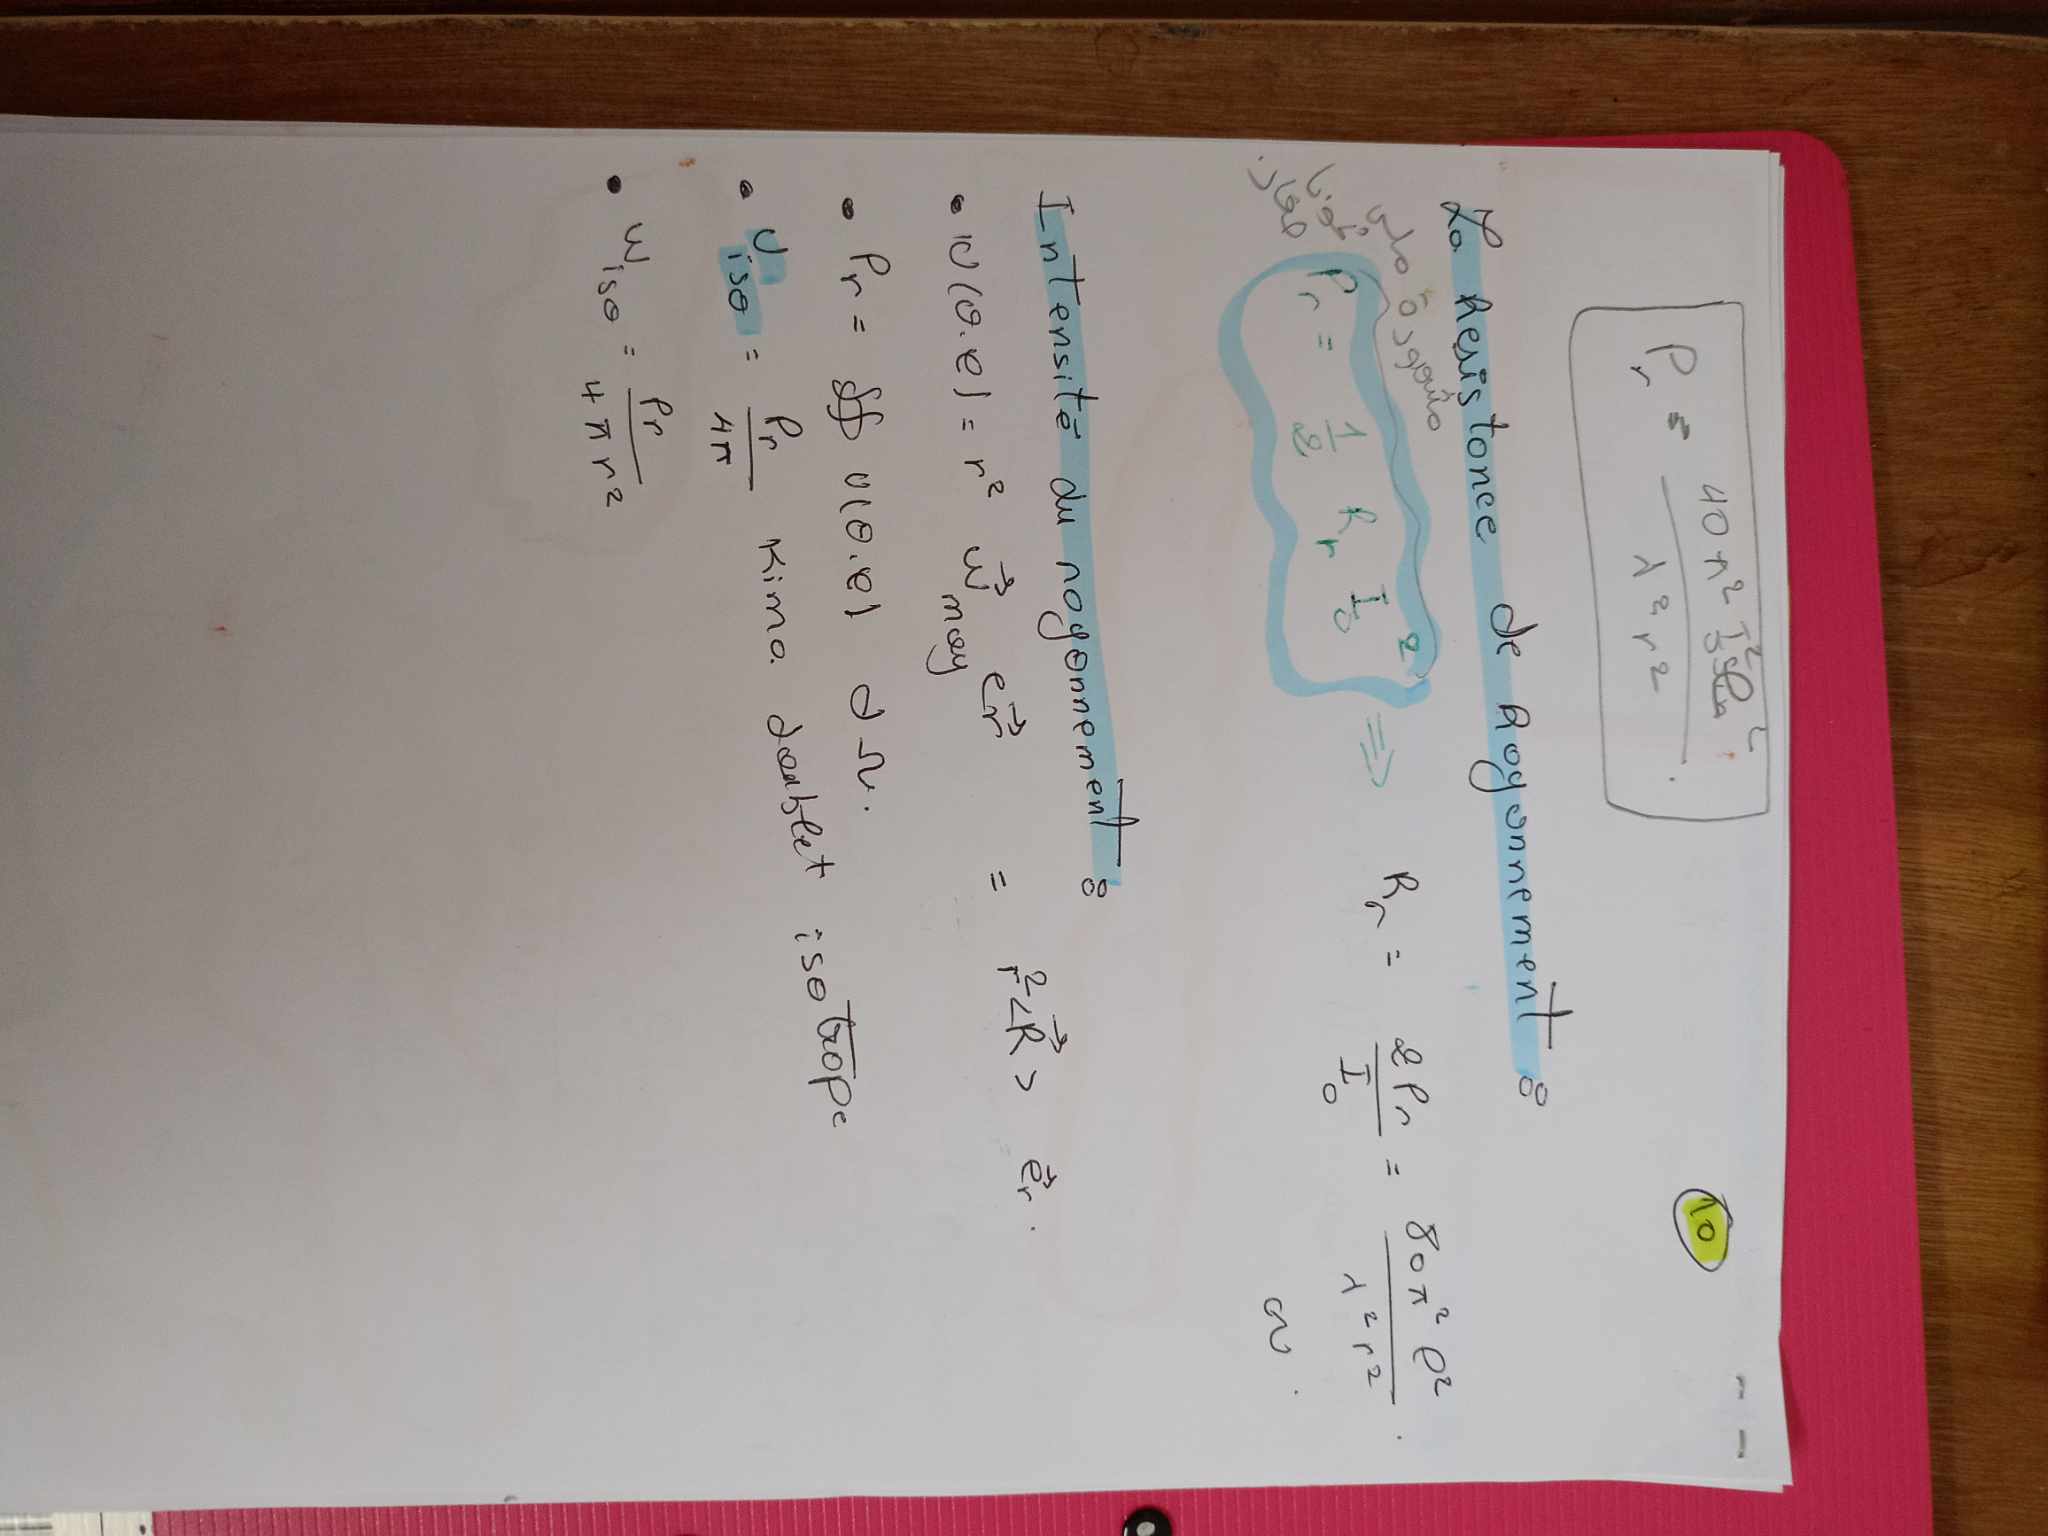 10
Pr = 40 π² I₀² l² / λ² r²
La Resistance de Rayonnement :
Pr = 1/2 Rr I₀² ⇒ Rr = 2Pr / I₀ = 80π² l² / λ² r² .
Ω .
Intensité du rayonnement :
• U(θ.φ) = r² W⃗ moy e⃗r = r² <R⃗> e⃗r .
• Pr = ∯ U(θ.φ) dΩ .
• U iso = Pr / 4π Kima doublet isotrope
• W iso = Pr / 4 π r²